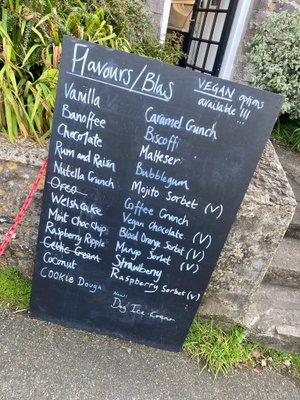 Flavours/Blas
VEGAN options
available !!!
Vanilla
Banoffee
Chocolate
Rum and Raisin
Nutella Crunch
Oreo
Welsh Cake
Mint Choc Chip
Raspberry Ripple
Celtic Cream
Coconut
Cookie Dough
Caramel Crunch
Biscoffi
Malteser
Bubblegum
Mojito Sorbet (V)
Coffee Crunch
Vegan Chocolate (V)
Blood Orange Sorbet (V)
Mango Sorbet (V)
Strawberry
Raspberry Sorbet (V)
Dog Ice-Cream